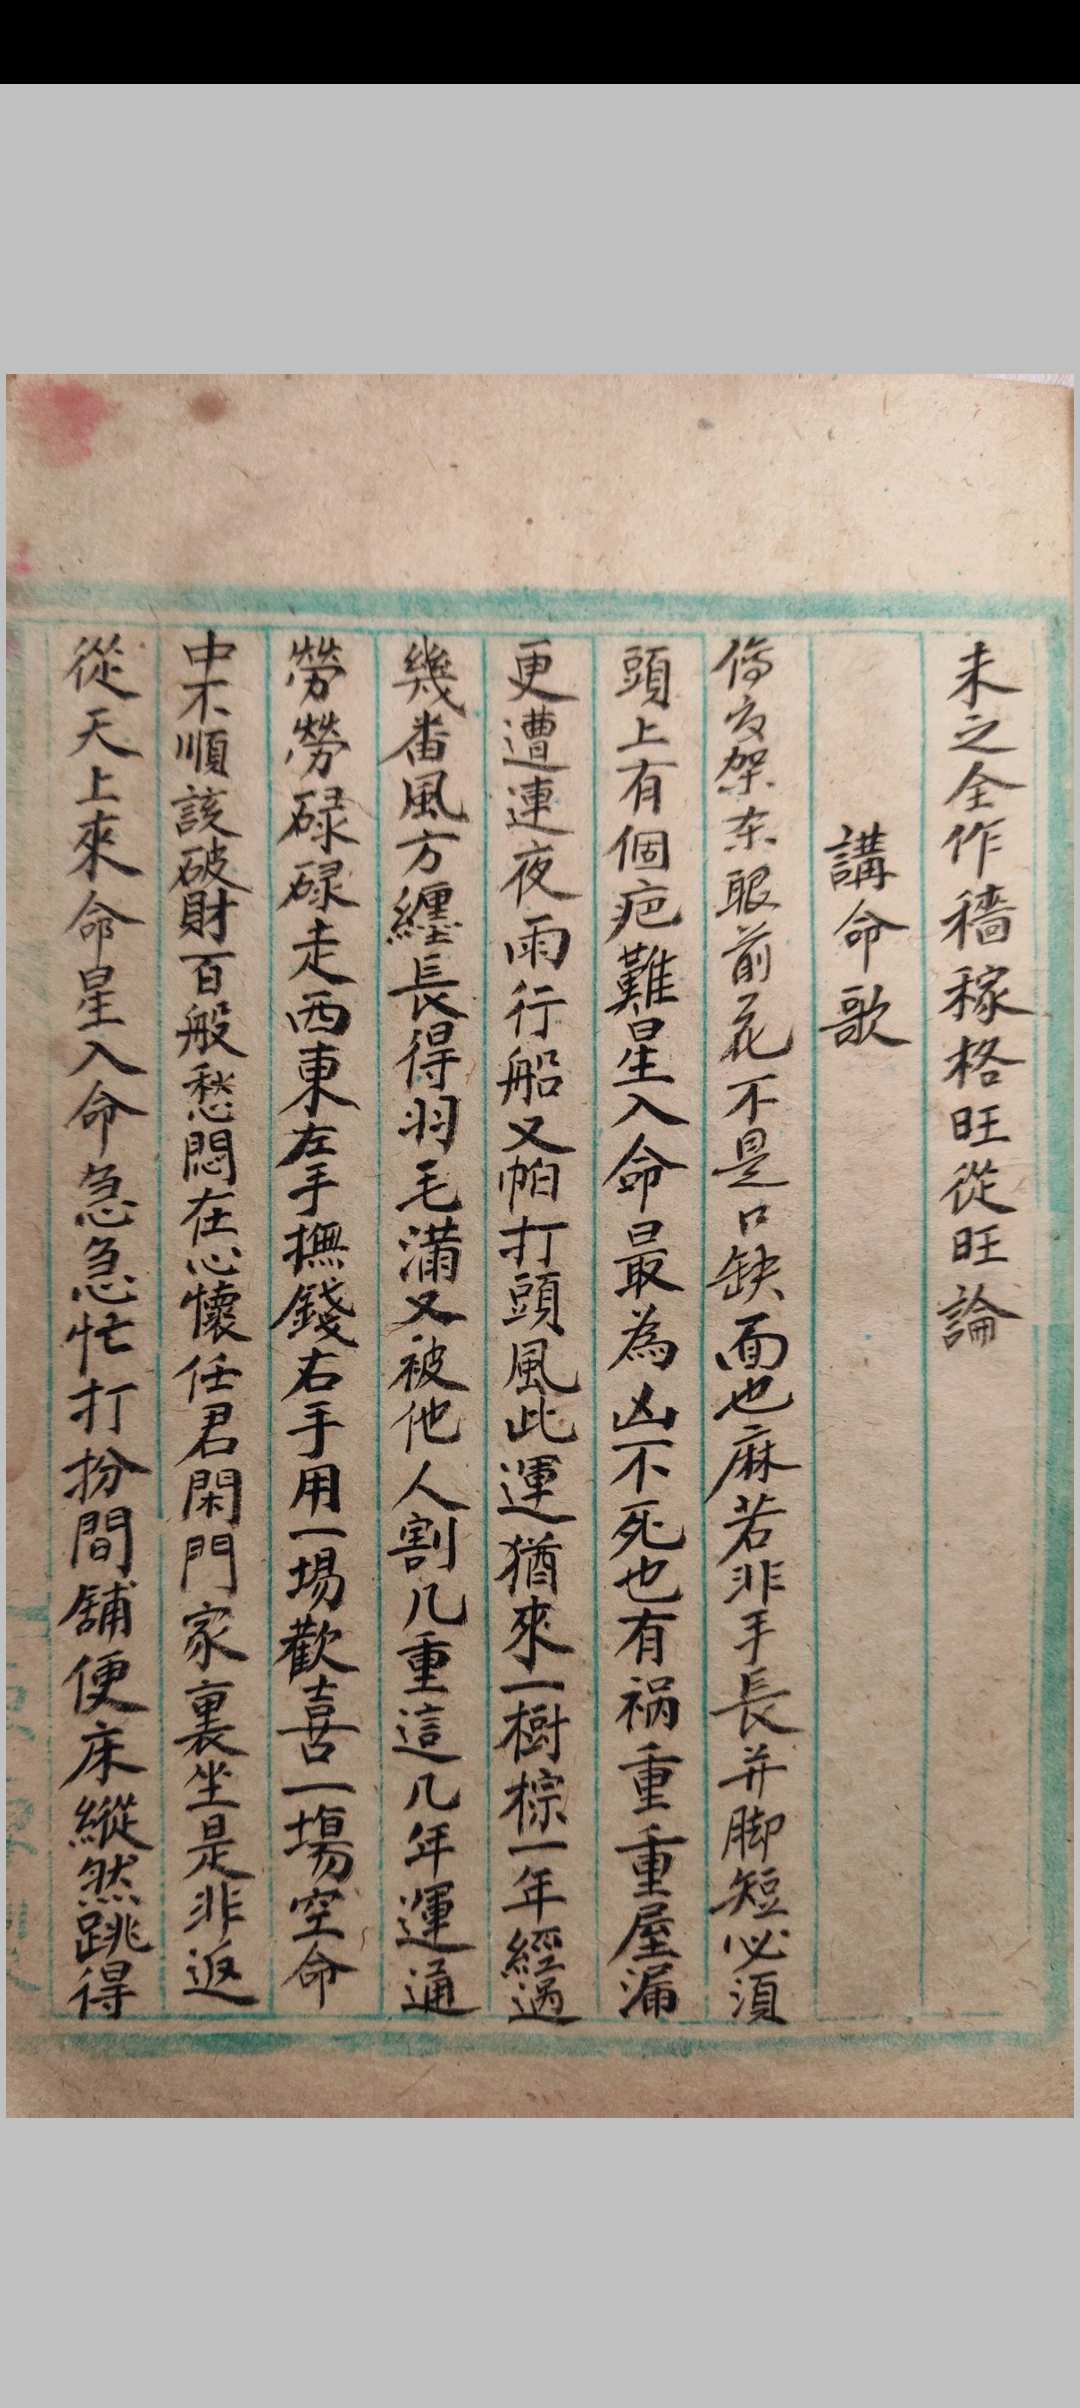 未之全作穡稼格旺從旺論
講命歌
傷友架东眼前花不是口缺面也麻若非手長并脚短必須
頭上有個疤難星入命最為凶不死也有祸重重屋漏
更遭連夜雨行船又帕打頭風此運猶來一樹棕一年經過
幾番風方纏長得羽毛滿又被他人割几重這几年運通
勞勞碌碌走西東左手撫錢右手用一場歡喜一塲空命
中不順該破財百般愁悶在心懷任君閑門家裏坐是非返
從天上來命星入命急急忙打扮間舖便床縱然跳得